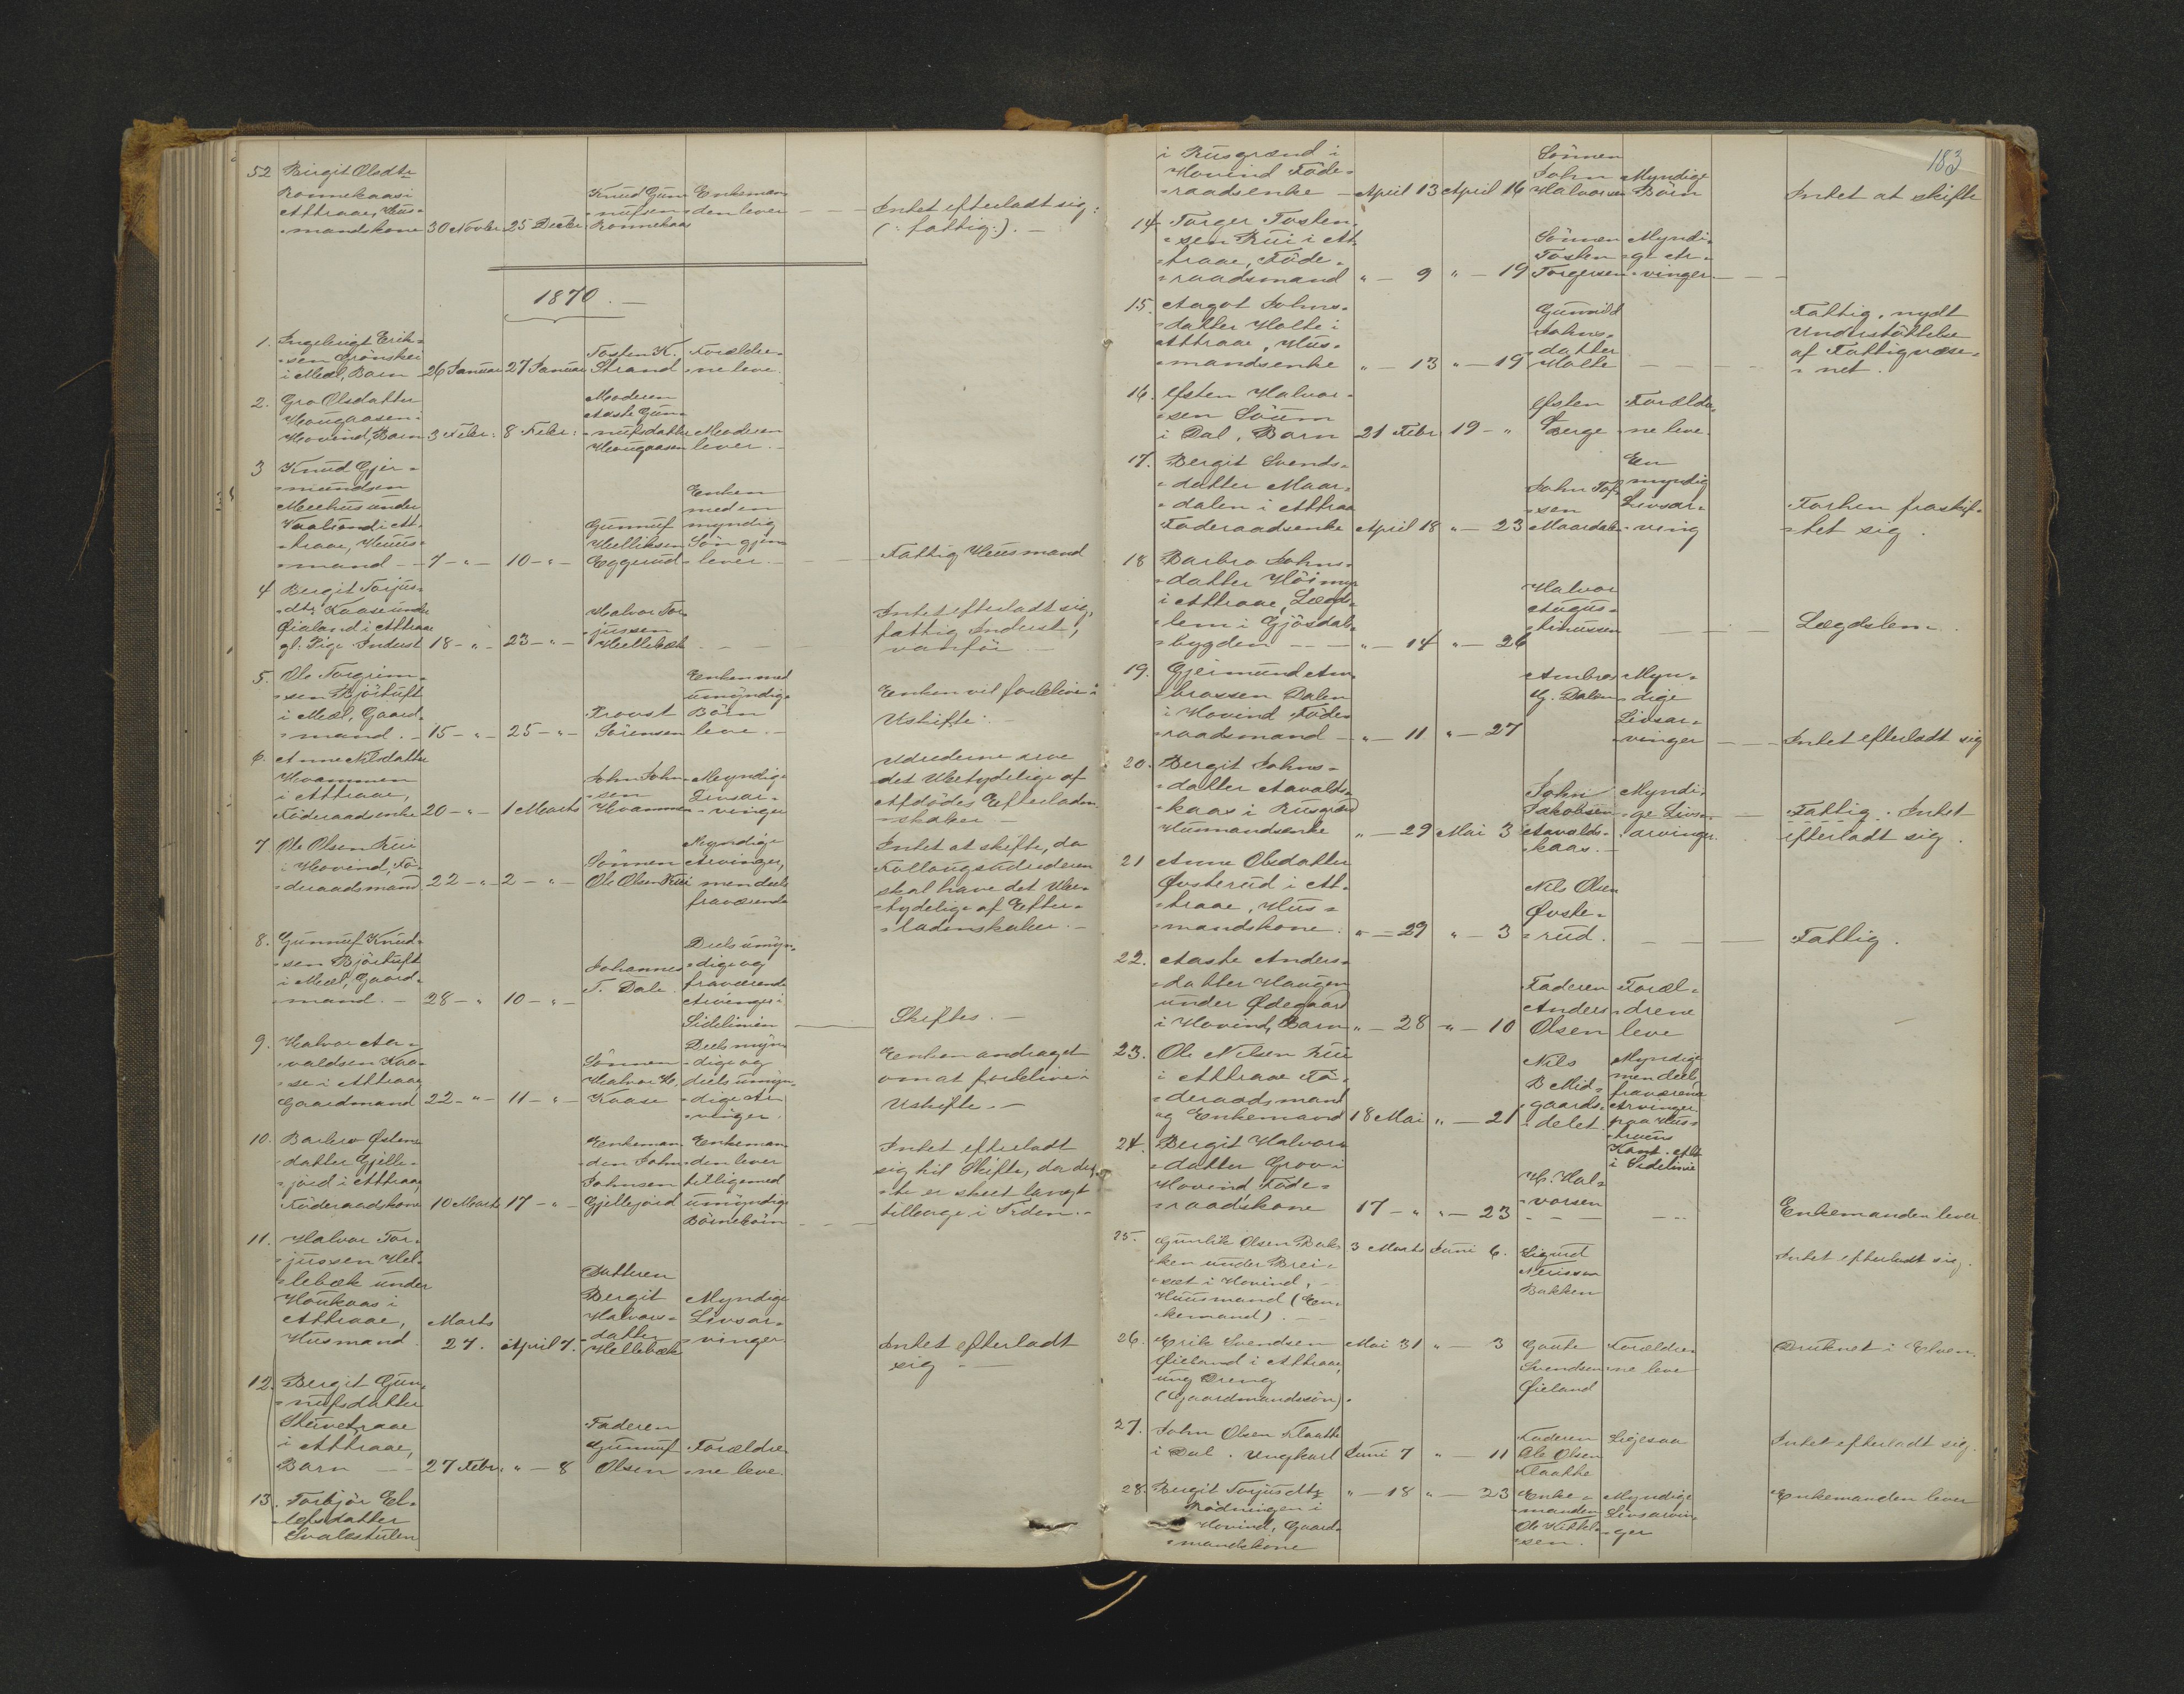 52 Birgit Olsdtr
Ronnekaas i
Attraae, Hus-
mandskone 30 Novbr. 25 Decbr. Knud Gun-
nufsen
Ronnekaas Enkeman-
den lever Intet efterladt sig:
(: fattig:). —
1870. —
1. Ingebrigt Erik-
sen Grönskei
i Mæl, Barn 26 Januar 27 Januar Tosten K.
Strand Forældre-
ne leve.
2. Gro Olsdatter
Hougaasen i
Hovind, Barn 3 Febr: 8 Febr: Moderen
Aaste Gun-
nufsdatter
Hougaasen Moderen
lever. —
3 Knud Gjer-
mundsen
Meehus under
Vaaland i At-
traae, Huus-
mand — 7 - " - 10 - " - Gunnuf
Helliksen
Eggerud Enken
med en
myndig
Sön gjen-
lever. — Fattig Husmand
4 Bergit Torjus-
dtr. Kaase under
Øialand i Attraae
gl. Pige Inderst 18 - " - 23 - " - Halvor Tor-
jussen
Hellebæk Intet efterladt sig,
fattig Inderst,
vanför —
5. Ole Torgrim-
sen Björtuft
i Mæl, Gaard-
mand. — 15 - " - 25 - " - Provst
Sörensen Enken med
umyndige
Börn
leve. — Enken vil forblive i
Uskifte. —
6. Anne Nilsdatter
Hvammen
i Attraae,
Föderaadsenke 20 - " - 1 Marts John John-
sen
Hvammen Myndige
Livsar-
vinger Udrederne arve
det Ubetydelige af
Afdödes Efterladen-
skaber —
7 Ole Olsen Rui
i Hovind, Fö-
deraadsmand 22 - " - 2 - " - Sönnen
Ole Olsen Rui Myndige
Arvinger,
men deels
fraværende Intet at skifte, da
Follougsudrederen
skal have det Ube-
tydelige af Efter-
ladenskaber. —
8. Gunnuf Knud-
sen Björtuft
i Mæl, Gaard-
mand. — 28 - " 10 - " - Johannes
T. Dale Deels umyn-
dige og
fraværende
Arvinger i
Sidelinien Skiftes. —
9. Halvor Aa-
valdsen Kaa-
se i Attraae,
Gaardmand 22 - " - 11 - " - Sönnen
Halvor H.
Kaase Deels myn-
dige og
deels umyn-
dige Ar-
vinger. Enken andraget
om at forblive i
Uskifte. —
10. Barbro Østens-
datter Gjelle-
jord i Attraae,
Föderaadskone 10 Marts 17 - " - Enkeman-
den John
Johnsen
Gjellejord Enkeman-
den lever
tilligemed
umyndige
Börnebörn Intet efterladt
sig til Skifte, da det-
te er skeet langt
tilbage i Tiden. —
11. Halvor Tor-
jussen Hel-
lebæk under
Houkaas i
Attraae,
Husmand Marts
27. April 7. Datteren
Bergit
Halvors-
datter
Hellebæk Myndige
Livsar-
vinger. Intet efterladt
sig —
12. Bergit Gun-
nufsdatter
Skuvetraae
i Attraae,
Barn — 27 Febr. " — 8 Faderen
Gunnuf
Olsen Forældre-
ne leve.
13. Torbjör El-
lefsdatter
Svalestulen
183
i Rusgrænd i
Hovind Föde-
raadsenke — April 13 April 16 Sönnen
John
Halvorsen Myndige
Börn Intet at skifte
14. Torger Tosten-
sen Rui i At-
traae, Föde-
raadsmand " — 9 " — 19 Sönnen
Tosten
Torgersen Myndi-
ge Ar-
vinger.
15. Aagot Johns-
datter Holte i
Attraae, Hus-
mandsenke " — 13 " — 19 Gunnild
Johns-
datter
Holte Fattig, nydt
Understöttelse
af Fattigvæse-
net.
16. Østen Halvor-
sen Söum
i Dal, Barn 21 Febr 19 - " Østen
Berge Forældre-
ne leve.
17. Bergit Svends-
datter Maar-
dalen i Attraa
Föderaadsenke April 18 " — 23 John Tof-
sen
Maardalen En
myndig
Livsar-
ving Forhen fraskif-
tet sig.
18 Barbro Johns-
datter Höimyr
i Attraae, Lægds-
lem i Gjösdal-
bygden — " — 14 " — 26 Halvor
Augus-
tinussen Lægdslem
19. Gjermund Am-
brossen Dalen
i Hovind Föde-
raadsmand — " — 11 " — 27 Ambros
G. Dalen Myn-
dige
Livsar-
vinger Intet efterladt sig
20. Bergit Johns-
datter Aavalds-
kaas i Rusgrænd
Husmandsenke " — 29 Mai 3 John
Jakobsen
Aavalds-
kaas. — Myndi-
ge Livs-
arvinger. Fattig. Intet
efterladt sig.
21 Anne Olsdatter
Øvsterud i At-
traae, Hus-
mandskone. " — 29 " — 3 Nils Olsen
Øvste-
rud. Fattig.
22. Aaste Anders-
datter Haugen
under Ødegaard
i Hovind, Barn " — 28 " — 10 Faderen
Anders
Olsen Foræl-
drene
leve
23. Ole Nilsen Rui
i Attraae Fö-
deraadsmand
og Enkemand 18 Mai " — 21 Nils
B Mid-
gaards-
delet Myndige
men deels
fraværende
Arvinger
paa Hus-
truens
Kant. alt
i Sidelinie
24. Bergit Halvors-
datter Grov i
Hovind, Föde-
raadskone 17 - " " — 23 H. Hal-
vorsen Enkemanden lever.
25. Gunlik Olsen Bak-
ken under Brei-
set i Hovind, —
Huusmand (En-
kemand). — 3 Marts Juni 6. Sigurd
Neirisson
Bakken Intet efterladt sig.
26. Erik Svendsen
Øieland i Attraae,
ung Dreng
(Gaardmandssön). Mai 31 " — 3 Gaute
Svendsen
Øieland Forældre-
ne leve Druknet i Elven.
27. John Olsen Flaatte
i Dal. Ungkarl Juni 7 " — 11 Faderen
Ole Olsen
Flaatte Ligesaa Intet efterladt sig.
28. Bergit Torjusdtr
Rödningen i
Hovind, Gaard-
mandskone " — 18 " — 23 Enke-
manden
Ole Kittel-
sen. Myndige
Livsarvin-
ger Enkemanden lever